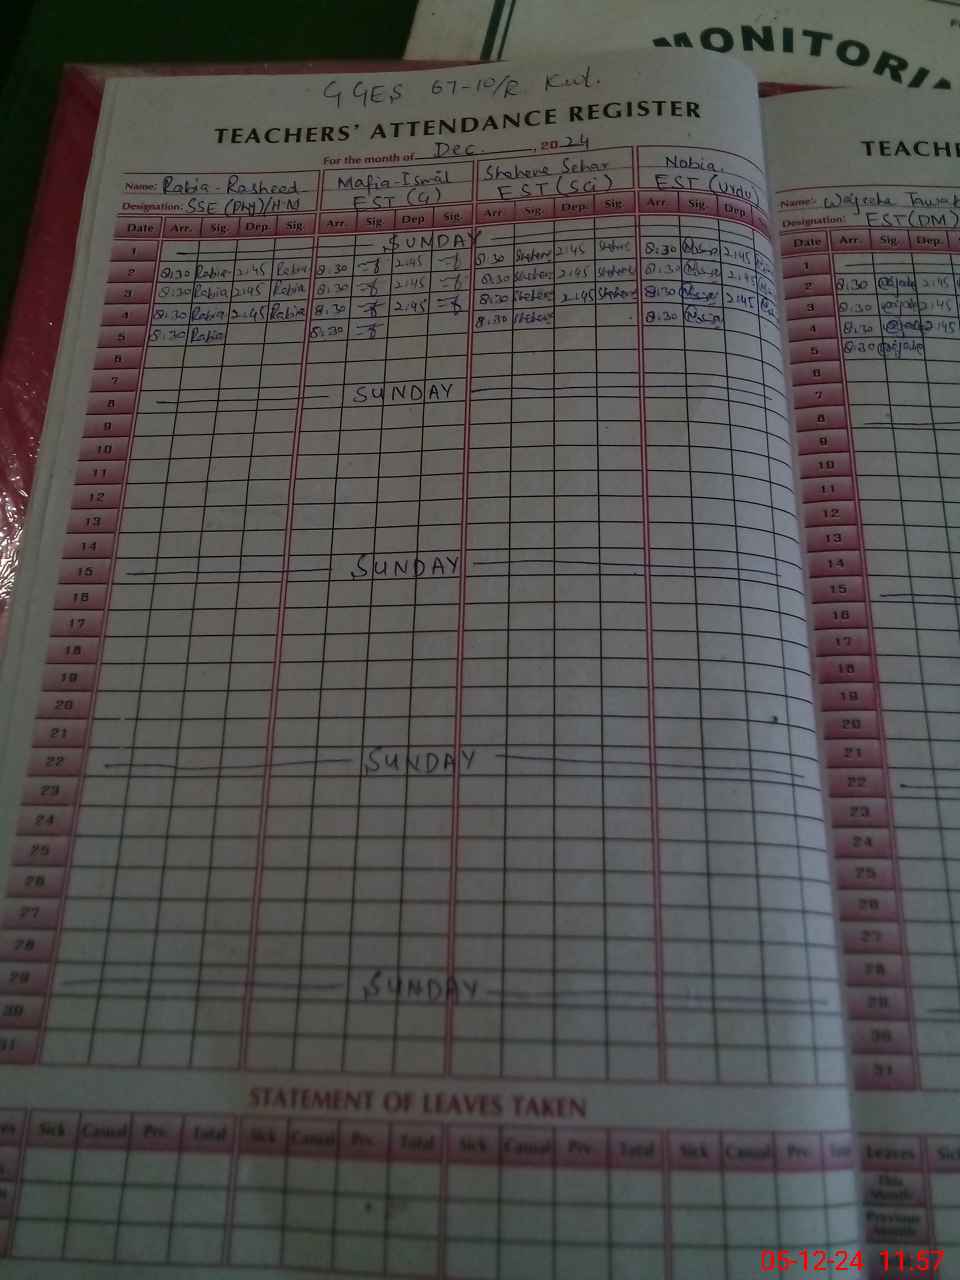 MONITORI
GGES 67-10/R Kwl.
TEACHERS' ATTENDANCE REGISTER
For the month of Dec. , 2024
Name: Rabia-Rasheed Mafia-Ismail Shaheve Sehar Nobia.
Designation: SSE (Phy)/H-M EST (G) EST (Sci) EST (Urdu)
Date Arr. Sig. Dep. Sig. Arr. Sig. Dep. Sig. Arr. Sig. Dep. Sig. Arr. Sig. Dep
1 SUNDAY
2 8:30 Rabia 2:45 Rabia 8:30 2:45 8:30 Shaheve 2:45 Shaheve 8:30 2:45
3 8:30 Rabia 2:45 Rabia 8:30 2:45 8:30 Shaheve 2:45 Shaheve 8:30 2:45
4 8:30 Rabia 2:45 Rabia 8:30 2:45 8:30 Shaheve 2:45 Shaheve 8:30 2:45
5 8:30 Rabia 8:30 8:30 Shaheve 8:30
6
7
8 SUNDAY
9
10
11
12
13
14
15 SUNDAY
16
17
18
19
20
21
22 SUNDAY
23
24
25
26
27
28
29 SUNDAY
30
31
STATEMENT OF LEAVES TAKEN
Sick Casual Prv. Total Sick Casual Prv. Total Sick Casual Prv. Total Sick Casual Prv.
TEACHE
Name:
Designation: EST(DM)
Date Arr. Sig Dep.
1
2 8:30 2:45
3 8:30 2:45
4 8:30 2:45
5 8:30
6
7
8
9
10
11
12
13
14
15
16
17
18
19
20
21
22
23
24
25
26
27
28
29
30
31
Leaves Sic
This Month
Previous
05-12-24 11:57